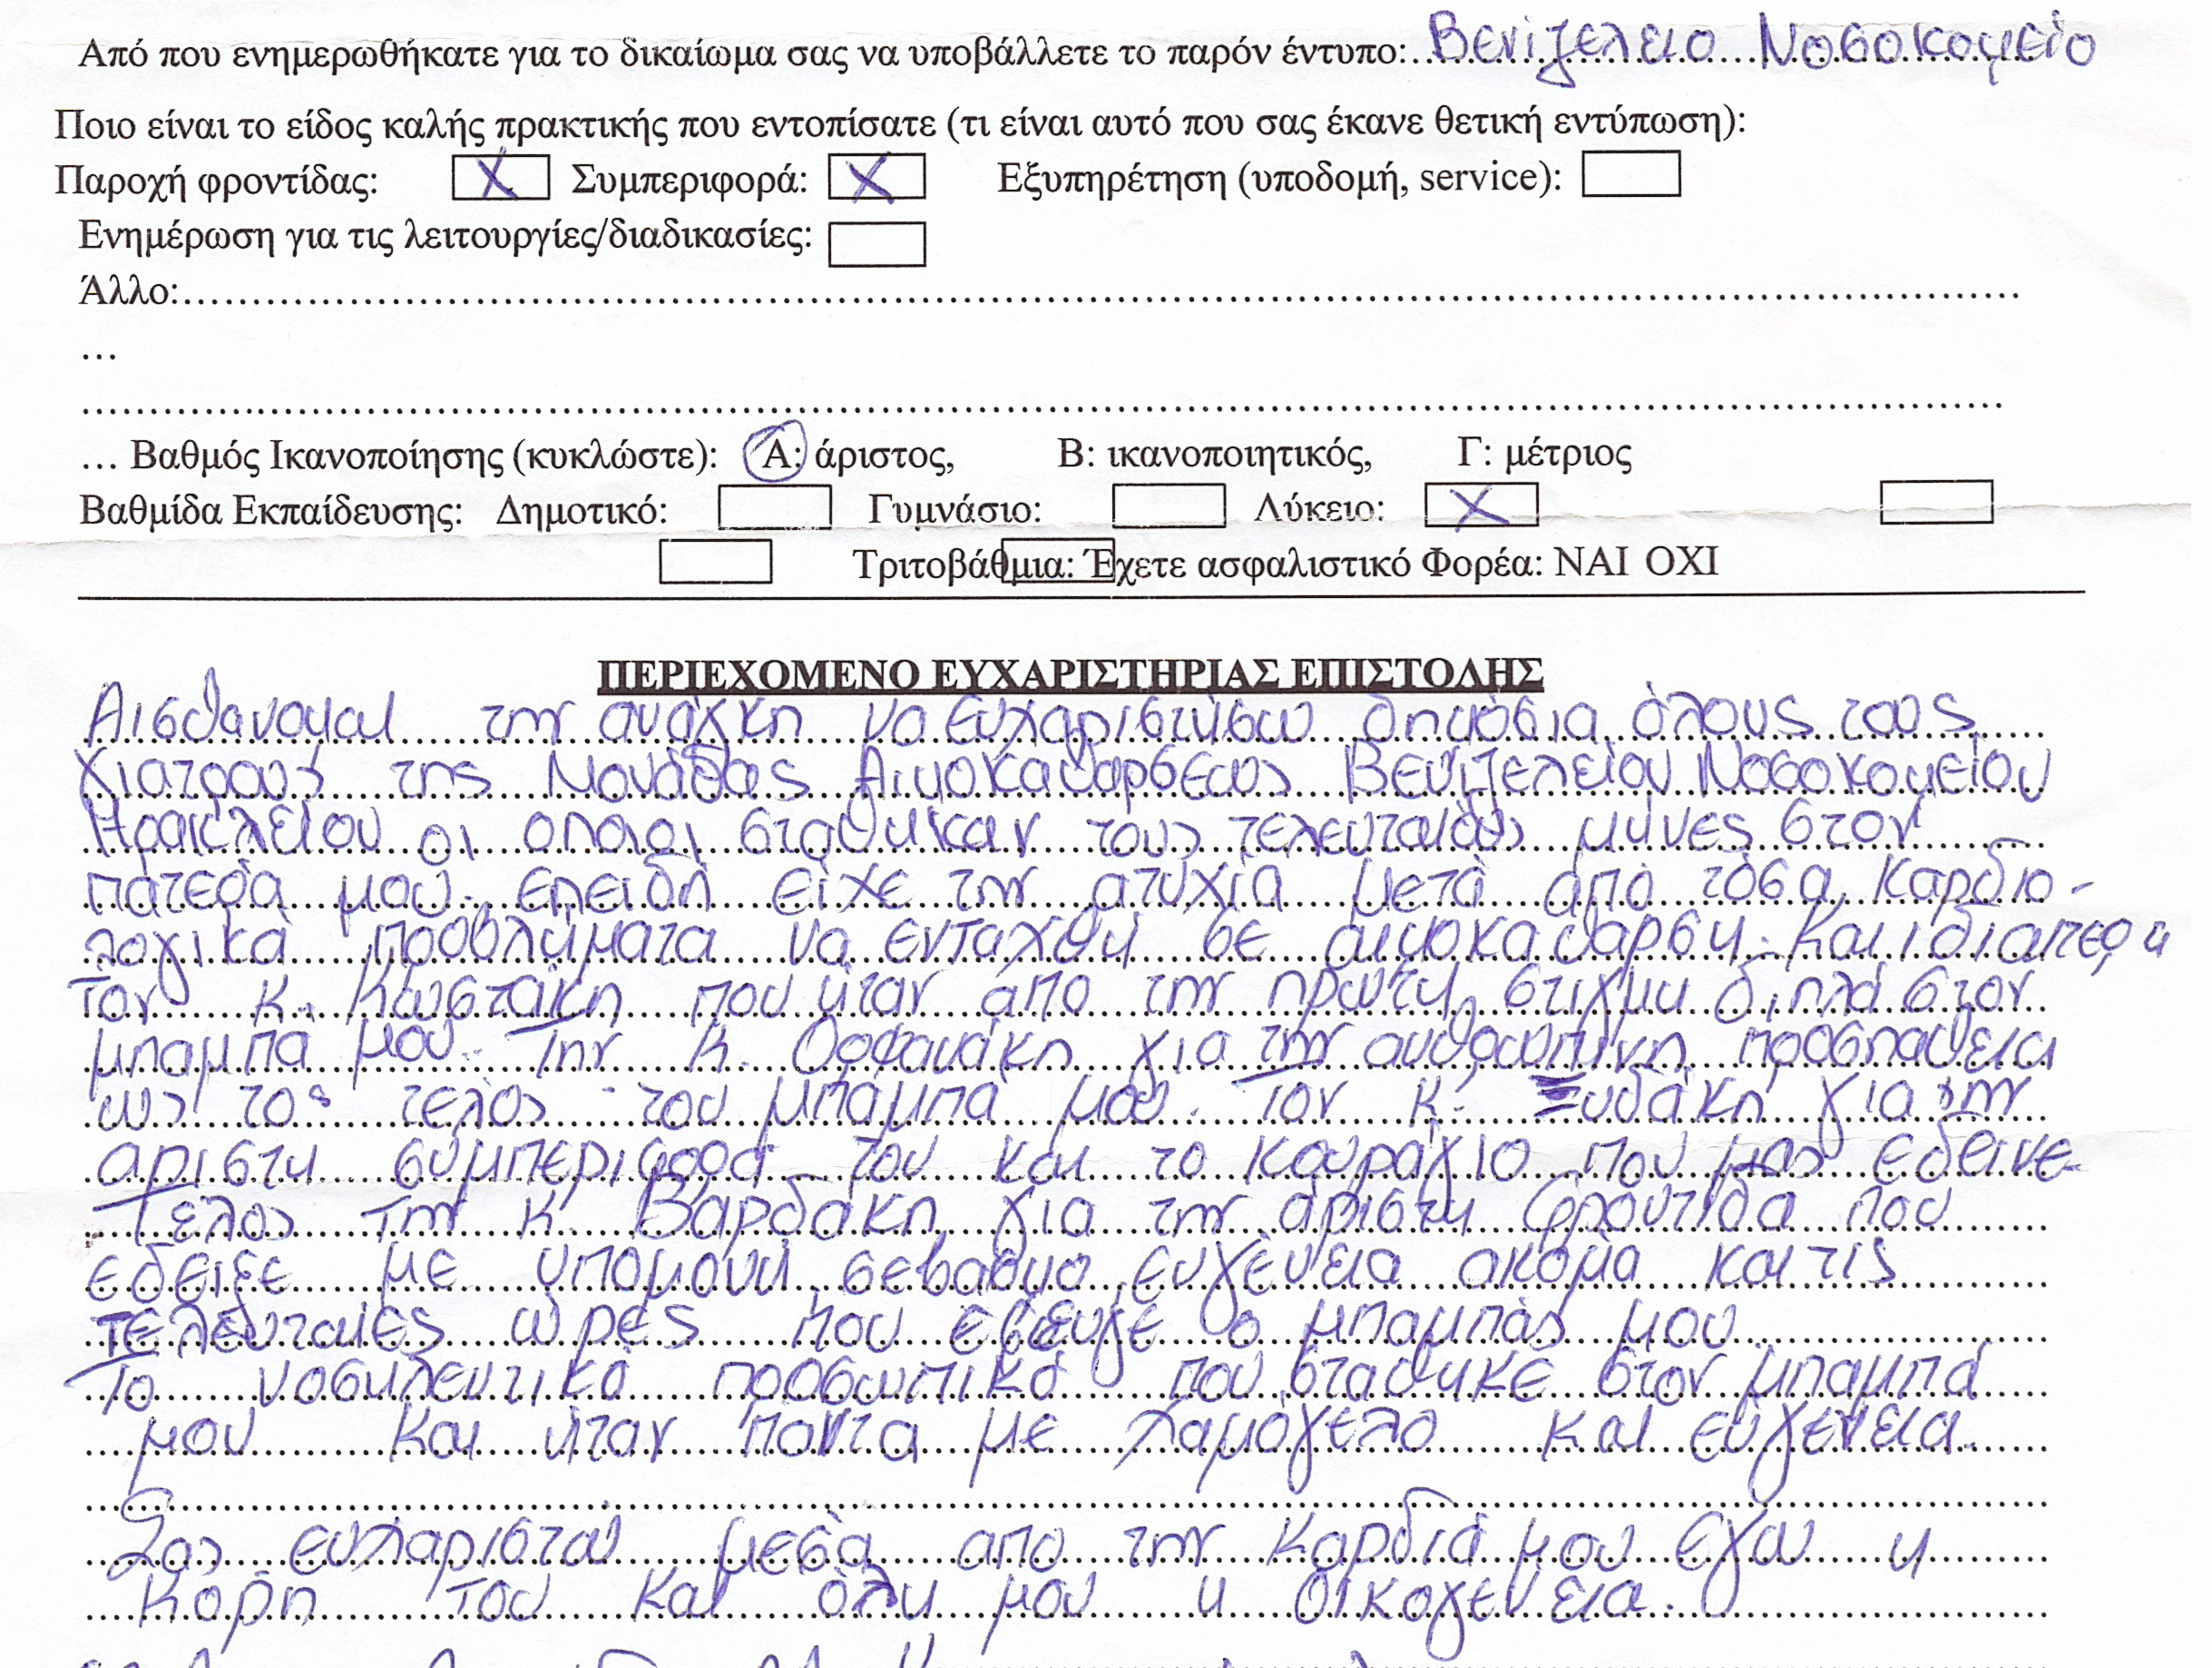 Από που ενημερωθήκατε για το δικαίωμα σας να υποβάλλετε το παρόν έντυπο: Βενιζελειο Νοσοκομείο
Ποιο είναι το είδος καλής πρακτικής που εντοπίσατε (τι είναι αυτό που σας έκανε θετική εντύπωση):
Παροχή φροντίδας: X Συμπεριφορά: X Εξυπηρέτηση (υποδομή, service):
Ενημέρωση για τις λειτουργίες/διαδικασίες:
Άλλο:
...
... Βαθμός Ικανοποίησης (κυκλώστε): Α: άριστος, Β: ικανοποιητικός, Γ: μέτριος
Βαθμίδα Εκπαίδευσης: Δημοτικό: Γυμνάσιο: Λύκειο: X
Τριτοβάθμια: Έχετε ασφαλιστικό Φορέα: ΝΑΙ ΟΧΙ
ΠΕΡΙΕΧΟΜΕΝΟ ΕΥΧΑΡΙΣΤΗΡΙΑΣ ΕΠΙΣΤΟΛΗΣ
Αισθανομαι την ανάγκη να ευχαριστήσω δημόσια όλους τους
γιατρους της Μονάδας Αιμοκαθαρσεως Βενιζελείου Νοσοκομείου
Ηρακλείου οι οποιοι σταθηκαν τους τελευταίους μήνες στον
πατερα μου επειδή είχε την ατυχία μετά από τόσα καρδιο-
λογικά προβλήματα να ενταχθή σε αιμοκαθαρση. Και ιδιαπερη
Τον κ. Κωστάκη που ήταν από την πρώτη στιγμη διπλά στον
μπαμπά μου. Την κ. Ορφανάκη για την ανθρωπινη προσπαθεια
ως το τελος του μπαμπά μου. Τον κ. Ξυδάκη για την
αριστη συμπεριφορα του και το κουράγιο που μας εδεινε.
Τελος την κ. Βαρδακη για την άριστη φροντιδα που
εδειξε με υπομονή σεβασμο ευγένεια ακόμα και τις
τελευταιες ώρες που εφευγε ο μπαμπάς μου.
Το νοσηλευτικό προσωπικό που σταθηκε στον μπαμπά
μου και ηταν παντα με χαμόγελο και ευγένεια.
Σας ευχαριστώ μεσα από την καρδιά μου εγω η
κορη του και όλη μου η οικογένεια.